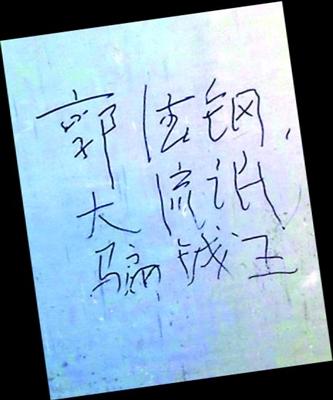 郭德钢，
大流氓
骗钱王